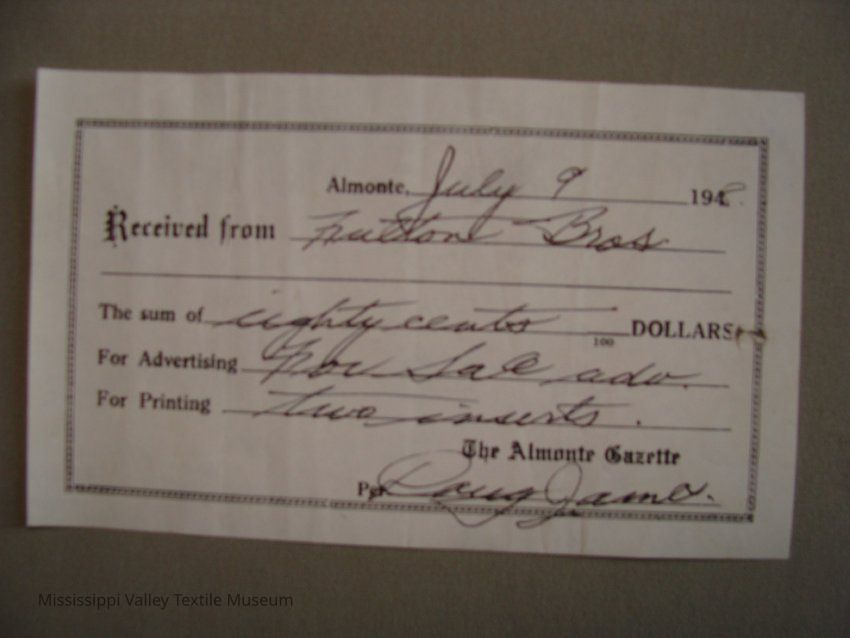 Almonte, July 9 1948.
Received from Fulton Bros
The sum of eighty cents 100 DOLLARS
For Advertising For Sale adv.
For Printing two inserts.
The Almonte Gazette
Per Doug Jame
Mississippi Valley Textile Museum